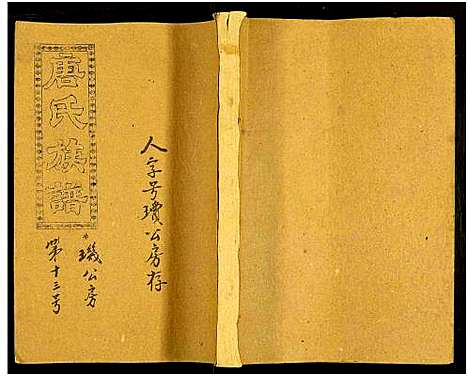 唐氏族譜
人字号瓊公房存
璣公房
第十三号